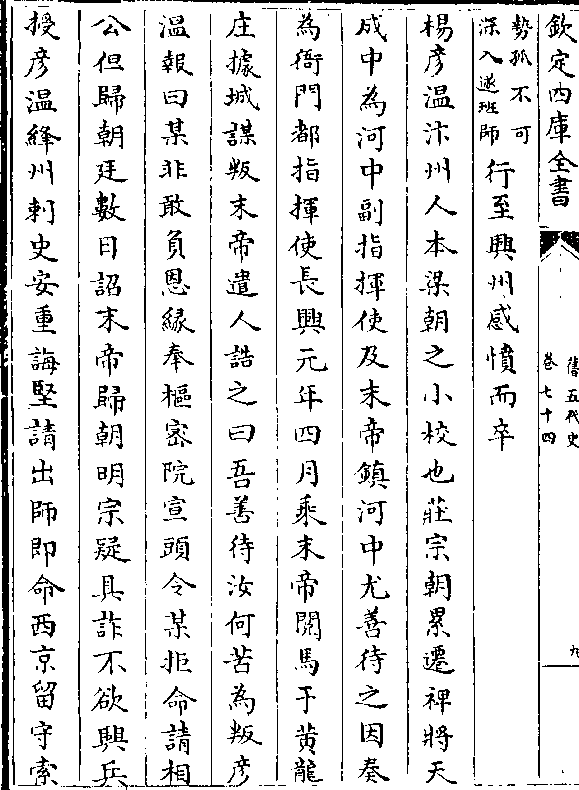 欽定四庫全書
舊五代史
卷七十四
九
勢孤不可
深入遂班師
行至興州感憤而卒
楊彥溫汴州人本梁朝之小校也莊宗朝累遷裨將天
成中為河中副指揮使及末帝鎮河中尤善待之因奏
為衙門都指揮使長興元年四月乘末帝閱馬于黃龍
庄據城謀叛末帝遣人誥之曰吾善待汝何苦為叛彥
溫報曰某非敢負恩緣奉樞密院宣頭令某拒命請相
公但歸朝廷數日詔末帝歸朝明宗疑其詐不欲興兵
授彥溫絳州刺史安重誨堅請出師即命西京留守索